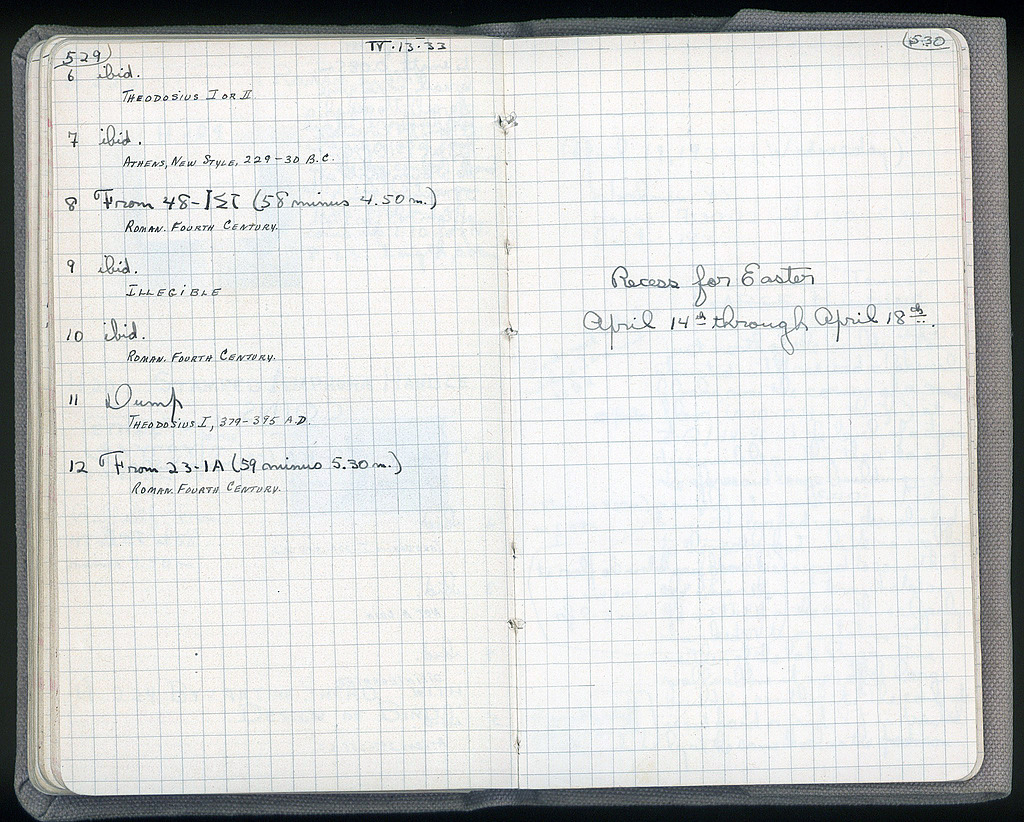 529
IV·13·33
6 ibid.
THEODOSIUS I OR II
7 ibid.
ATHENS, NEW STYLE, 229-30 B.C.
8 From 48-ΙΣΤ (58 minus 4.50 m.)
ROMAN. FOURTH CENTURY.
9 ibid.
ILLEGIBLE
10 ibid.
ROMAN. FOURTH CENTURY.
11 Dump
THEODOSIUS I, 379-395 A.D.
12 From 23-1A (59 minus 5.30 m.)
ROMAN. FOURTH CENTURY.
530
Recess for Easter
April 14th through April 18th.